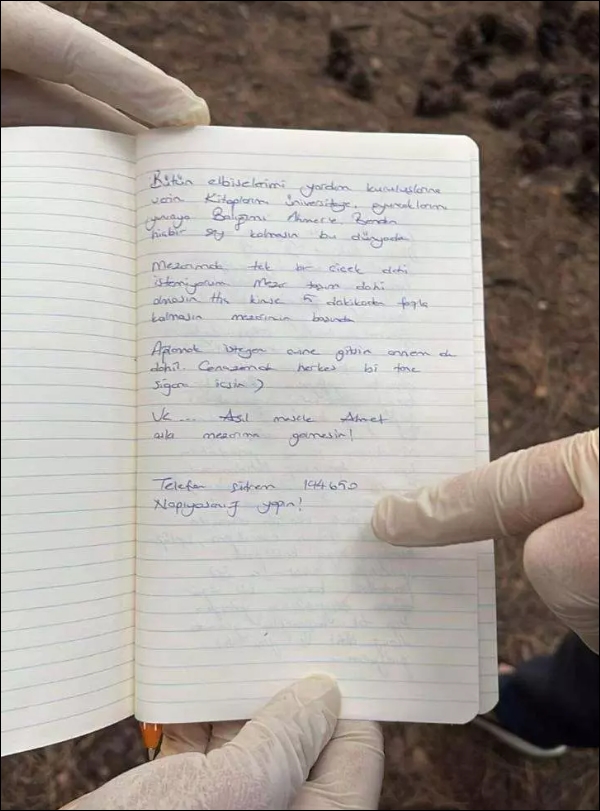 Bütün elbiselerimi yardım kuruluşlarına
verin Kitaplarım üniversiteye, oyuncaklarım
yuvaya Balığımı Ahmet'e. Benden
hiçbir şey kalmasın bu dünyada
Mezarımda tek bir çiçek dahi
istemiyorum Mezar taşım dahi
olmasın Hiç kimse 5 dakikadan fazla
kalmasın mezarımın başında
Ağlamak isteyen evine gitsin annem de
dahil. Cenazemde herkes bi tane
sigara içsin )
Ve ... Asıl mesele Ahmet
asla mezarıma gelmesin!
Telefon şifrem 194650
Napıyosanız yapın!